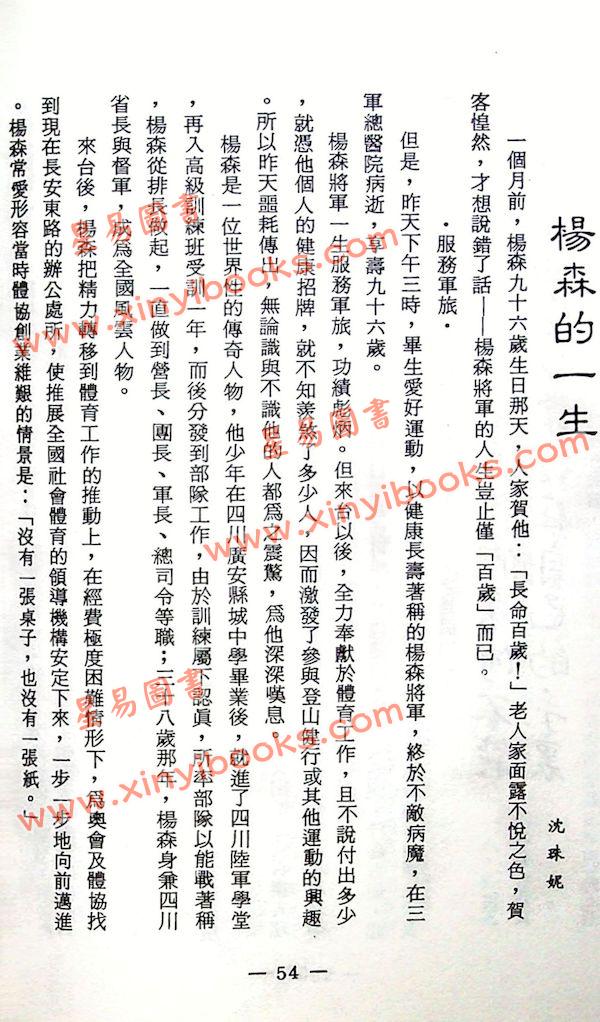 楊森的一生
沈珠妮
一個月前，楊森九十六歲生日那天，人家賀他：「長命百歲！」老人家面露不悅之色，賀
客惶然，才想說錯了話——楊森將軍的人生豈止僅「百歲」而已。
・服務軍旅・
但是，昨天下午三時，畢生愛好運動，以健康長壽著稱的楊森將軍，終於不敵病魔，在三
軍總醫院病逝，享壽九十六歲。
楊森將軍一生服務軍旅，功績彪炳。但來台以後，全力奉獻於體育工作，且不說付出多少
，就憑他個人的健康招牌，就不知羨煞了多少人，因而激發了參與登山健行或其他運動的興趣
。所以昨天噩耗傳出，無論識與不識他的人都為之震驚，為他深深嘆息。
楊森是一位世界性的傳奇人物，他少年在四川廣安縣城中學畢業後，就進了四川陸軍學堂
，再入高級訓練班受訓一年，而後分發到部隊工作，由於訓練屬下認真，所率部隊以能戰著稱
，楊森從排長做起，一直做到營長、團長、軍長、總司令等職；三十八歲那年，楊森身兼四川
省長與督軍，成為全國風雲人物。
來台後，楊森把精力轉移到體育工作的推動上，在經費極度困難情形下，為奧會及體協找
到現在長安東路的辦公處所，使推展全國社會體育的領導機構安定下來，一步一步地向前邁進
。楊森常愛形容當時體協創業維艱的情景是：「沒有一張桌子，也沒有一張紙。」
— 54 —
星易圖書
www.xinyibooks.com
星易圖書
www.xinyibooks.com
星易圖書
www.xinyibooks.com